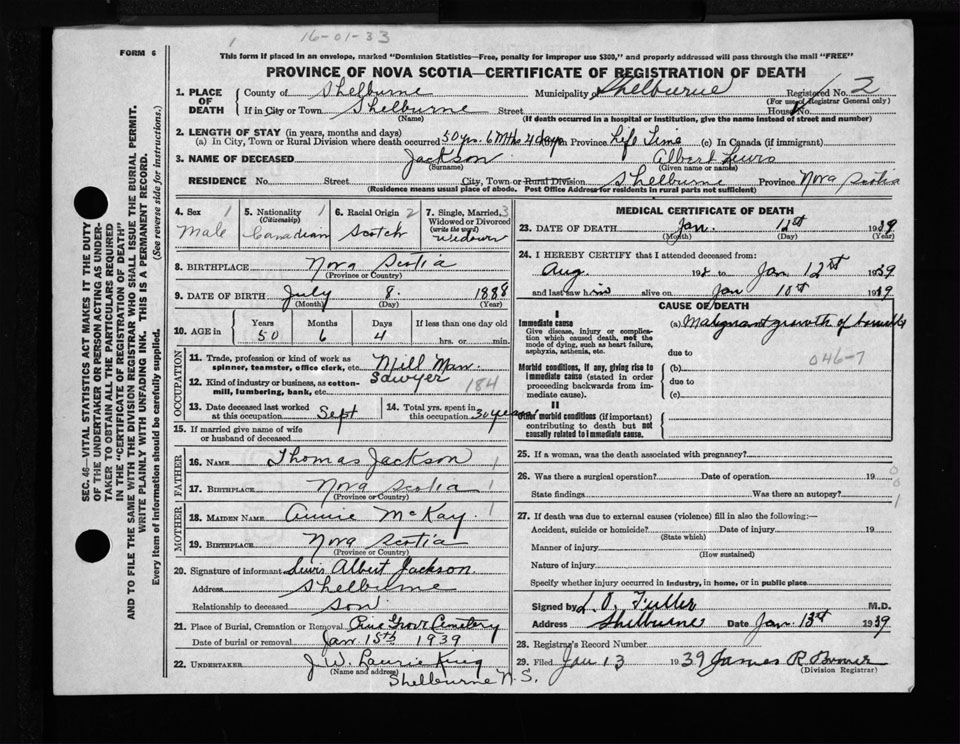 16-01-33
1
FORM 6
This form if placed in an envelope, marked "Dominion Statistics—Free, penalty for improper use $300," and properly addressed will pass through the mail "FREE"
PROVINCE OF NOVA SCOTIA—CERTIFICATE OF REGISTRATION OF DEATH
SEC. 46—VITAL STATISTICS ACT MAKES IT THE DUTY
OF THE UNDERTAKER OR PERSON ACTING AS UNDER-
TAKER TO OBTAIN ALL THE PARTICULARS REQUIRED
IN THE "CERTIFICATE OF REGISTRATION OF DEATH"
AND TO FILE THE SAME WITH THE DIVISION REGISTRAR WHO SHALL ISSUE THE BURIAL PERMIT.
WRITE PLAINLY WITH UNFADING INK. THIS IS A PERMANENT RECORD.
Every item of information should be carefully supplied. (See reverse side for instructions.)
1. PLACE OF DEATH County of Shelburne Municipality of Shelburne Registered No. 2
(For use of Registrar General only)
If in City or Town Shelburne Street House No.
(Name) (If death occurred in hospital or institution, give the name instead of street and number)
2. LENGTH OF STAY (in years, months and days)
(a) In City, Town or Rural Division where death occurred 50 yrs. 6 Mths 4 days In Province Life Time (c) In Canada (if immigrant)
3. NAME OF DECEASED Jackson Albert Lewis
(Surname) (Given name or names)
RESIDENCE No. Street City, Town or Rural Division Shelburne Province Nova Scotia
(Residence means usual place of abode. Post Office Address for residents in rural parts not sufficient)
4. Sex 1 Male
5. Nationality 1 (Citizenship) Canadian
6. Racial Origin 2 Scotch
7. Single, Married, 3 Widowed or Divorced (write the word) Widower
8. BIRTHPLACE Nova Scotia
(Province or Country)
9. DATE OF BIRTH July 8. 1888
(Month) (Day) (Year)
10. AGE in Years 50 Months 6 Days 4 If less than one day old hrs. or min.
OCCUPATION
11. Trade, profession or kind of work as spinner, teamster, office clerk, etc. Mill Man
12. Kind of industry or business, as cotton-mill, lumbering, bank, etc. Sawyer 184
13. Date deceased last worked at this occupation Sept
14. Total yrs. spent in this occupation 30 years
15. If married give name of wife or husband of deceased
FATHER
16. NAME Thomas Jackson 1
17. BIRTHPLACE Nova Scotia 1
(Province or Country)
MOTHER
18. MAIDEN NAME Annie McKay. 1
19. BIRTHPLACE Nova Scotia
(Province or Country)
20. Signature of informant Lewis Albert Jackson.
Address Shelburne
Relationship to deceased son
21. Place of Burial, Cremation or Removal Pine Grove Cemetery
Date of burial or removal Jan. 15th 1939
22. UNDERTAKER J. W. Laurie King
(Name and address) Shelburne N.S.
MEDICAL CERTIFICATE OF DEATH
23. DATE OF DEATH Jan. 12st 1939
(Month) (Day) (Year)
24. I HEREBY CERTIFY that I attended deceased from:
Aug. 1938 to Jan 12st 1939
and last saw him alive on Jan 10st 1939
CAUSE OF DEATH
I
Immediate cause (a) Malignant growth of
Give disease, injury or complication which caused death, not the mode of dying, such as heart failure, asphyxia, asthenia, etc.
due to 046-7
Morbid conditions, if any, giving rise to immediate cause (stated in order proceeding backwards from immediate cause). (b)
due to
(c)
II
Other morbid conditions (if important) contributing to death but not causally related to immediate cause.
25. If a woman, was the death associated with pregnancy?
26. Was there a surgical operation? Date of operation 19 0
State findings Was there an autopsy? 0
1
27. If death was due to external causes (violence) fill in also the following:—
Accident, suicide or homicide? Date of injury 19
(State which)
Manner of injury
(How sustained)
Nature of injury
Specify whether injury occurred in industry, in home, or in public place
Signed by L. O. Fuller M.D.
Address Shelburne Date Jan. 13st 1939
28. Registrar's Record Number
29. Filed Jan 13 1939 James R
(Division Registrar)